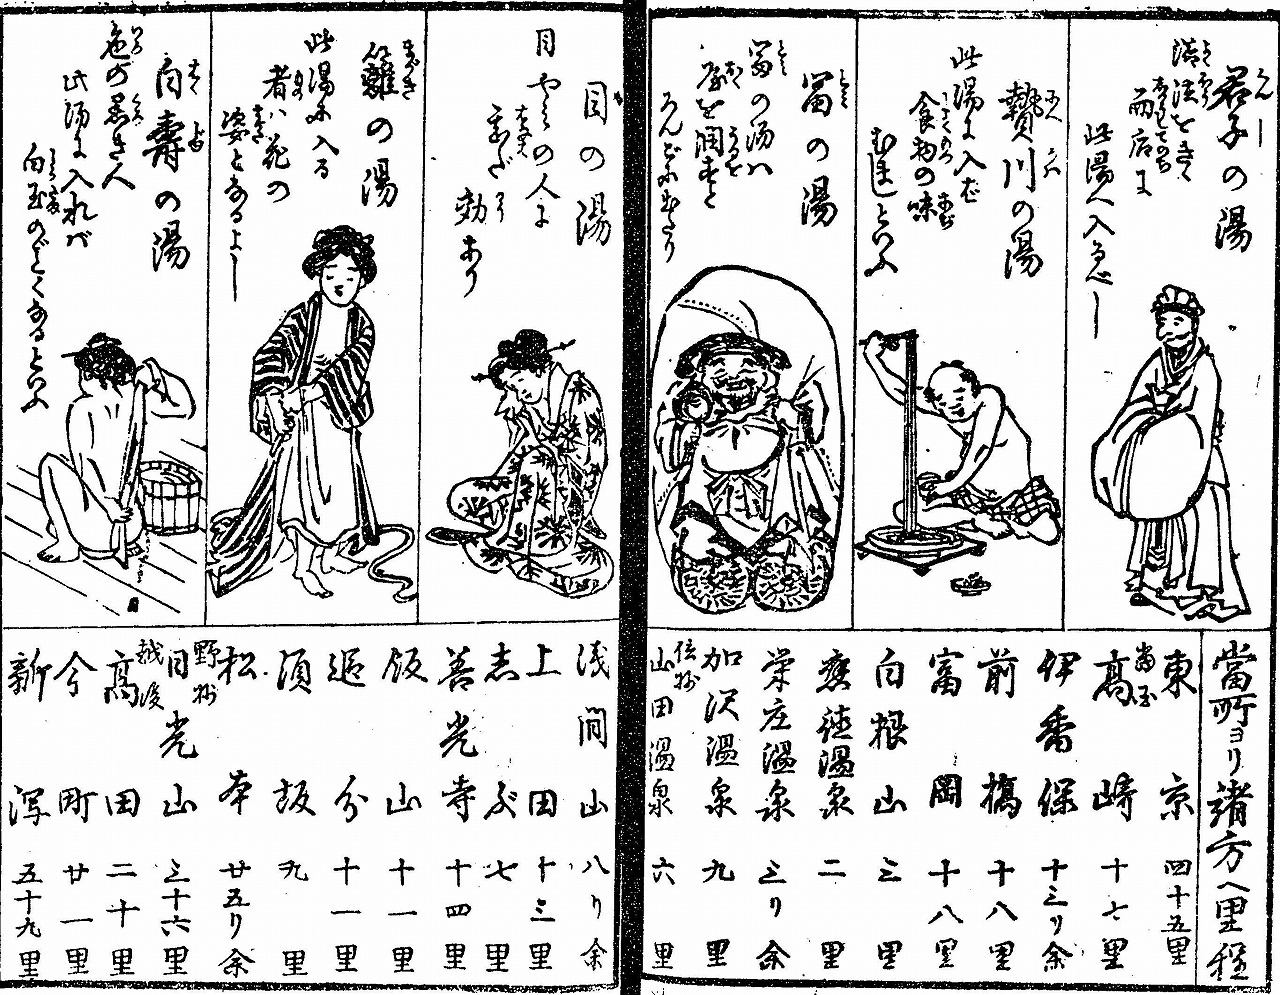 君子の湯
此湯へ入るべし
贄川の湯
此湯に入れば
食物の味
むましといふ
冨の湯
冨の湯は
屋を潤すと
目の湯
目やみの人に
効あり
籬の湯
此湯に入る
者は花の
姿となるよし
白壽の湯
色の黒き人
此湯に入れバ
白玉のごとくなるといふ
當町ヨリ諸方ヘ里程
東京 四十五里
髙崎 十七里
伊香保 十三リ余
前橋 十八里
富岡 十八里
白根山 三里
應徳温泉 二里
栄庄温泉 三リ余
加沢温泉 九里
信州
山田温泉 六里
浅間山 八リ余
上田 十三里
志ぶ 七里
善光寺 十四里
飯山 十一里
追分 十一里
須坂 九里
松本 廿五リ余
野州
日光山 三十六里
越後
髙田 二十里
今町 廿一里
新潟 五十九里